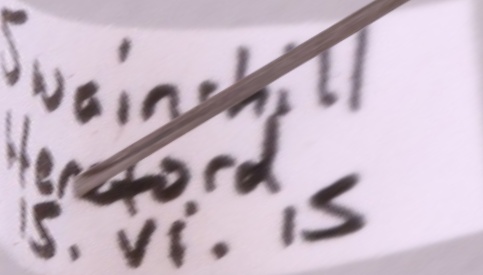 Swainshill
Hereford
15. vi. 15